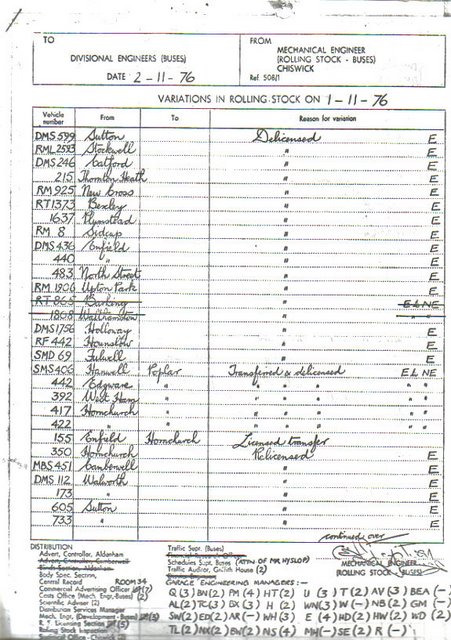 TO
DIVISIONAL ENGINEERS (BUSES)
DATE 2-11-76
FROM
MECHANICAL ENGINEER
(ROLLING STOCK - BUSES)
CHISWICK
Ref. 508/1
VARIATIONS IN ROLLING STOCK ON 1-11-76
Vehicle number From To Reason for variation
DMS 599 Sutton Delicensed E
RML 2593 Stockwell " E
DMS 246 Catford " E
215 Thornton Heath " E
RM 925 New Cross " E
RT 1373 Bexley " E
1637 Plumstead " E
RM 8 Sidcup " E
DMS 436 Enfield " E
440 " " E
483 North Street " E
RM 1906 Upton Park " E
RT 865 Barking ELNE
1868 Walthamstow " "
DMS 1756 Holloway " E
RF 442 Hounslow " E
SMD 69 Fulwell " E
SMS 406 Hanwell Poplar Transferred & delicensed ELNE
442 Edgware " " " " " "
392 West Ham " " " " " "
417 Hornchurch " " " " " "
422 " " " " " " "
155 Enfield Hornchurch Licensed transfer
350 Hornchurch Relicensed E
MBS 451 Camberwell " E
DMS 112 Walworth " E
173 " " E
605 Sutton " E
733 " " E
continued over
DISTRIBUTION
Advert, Controller, Aldenham
Body Spec. Section,
Central Record ROOM 34
Commercial Advertising Officer
Costs Office (Mech. Engr. Buses) (2)
Scientific Adviser (2)
Distribution Services Manager
Mech. Engr. (Development - Buses)
Rolling Stock Inspection
Traffic Supt. (Buses)
Schedules Supt. (Buses) (ATTN OF MR HYSLOP)
Traffic Auditor, Griffith House (2)
MECHANICAL ENGINEER
(ROLLING STOCK - BUSES)
GARAGE ENGINEERING MANAGERS:-
Q(3) BN(2) PM(4) HT(2) U(3) T(2) AV(3) BEA(-)
AL(2) TC(3) DX(3) H(2) WN(3) W(-) NB(2) GM(-)
SW(2) ED(2) AR(-) WH(3) E(4) HD(2) HW(2) WD(2)
TL(2) NX(2) BW(2) NS(4) MH(-) SE(2) R(-)